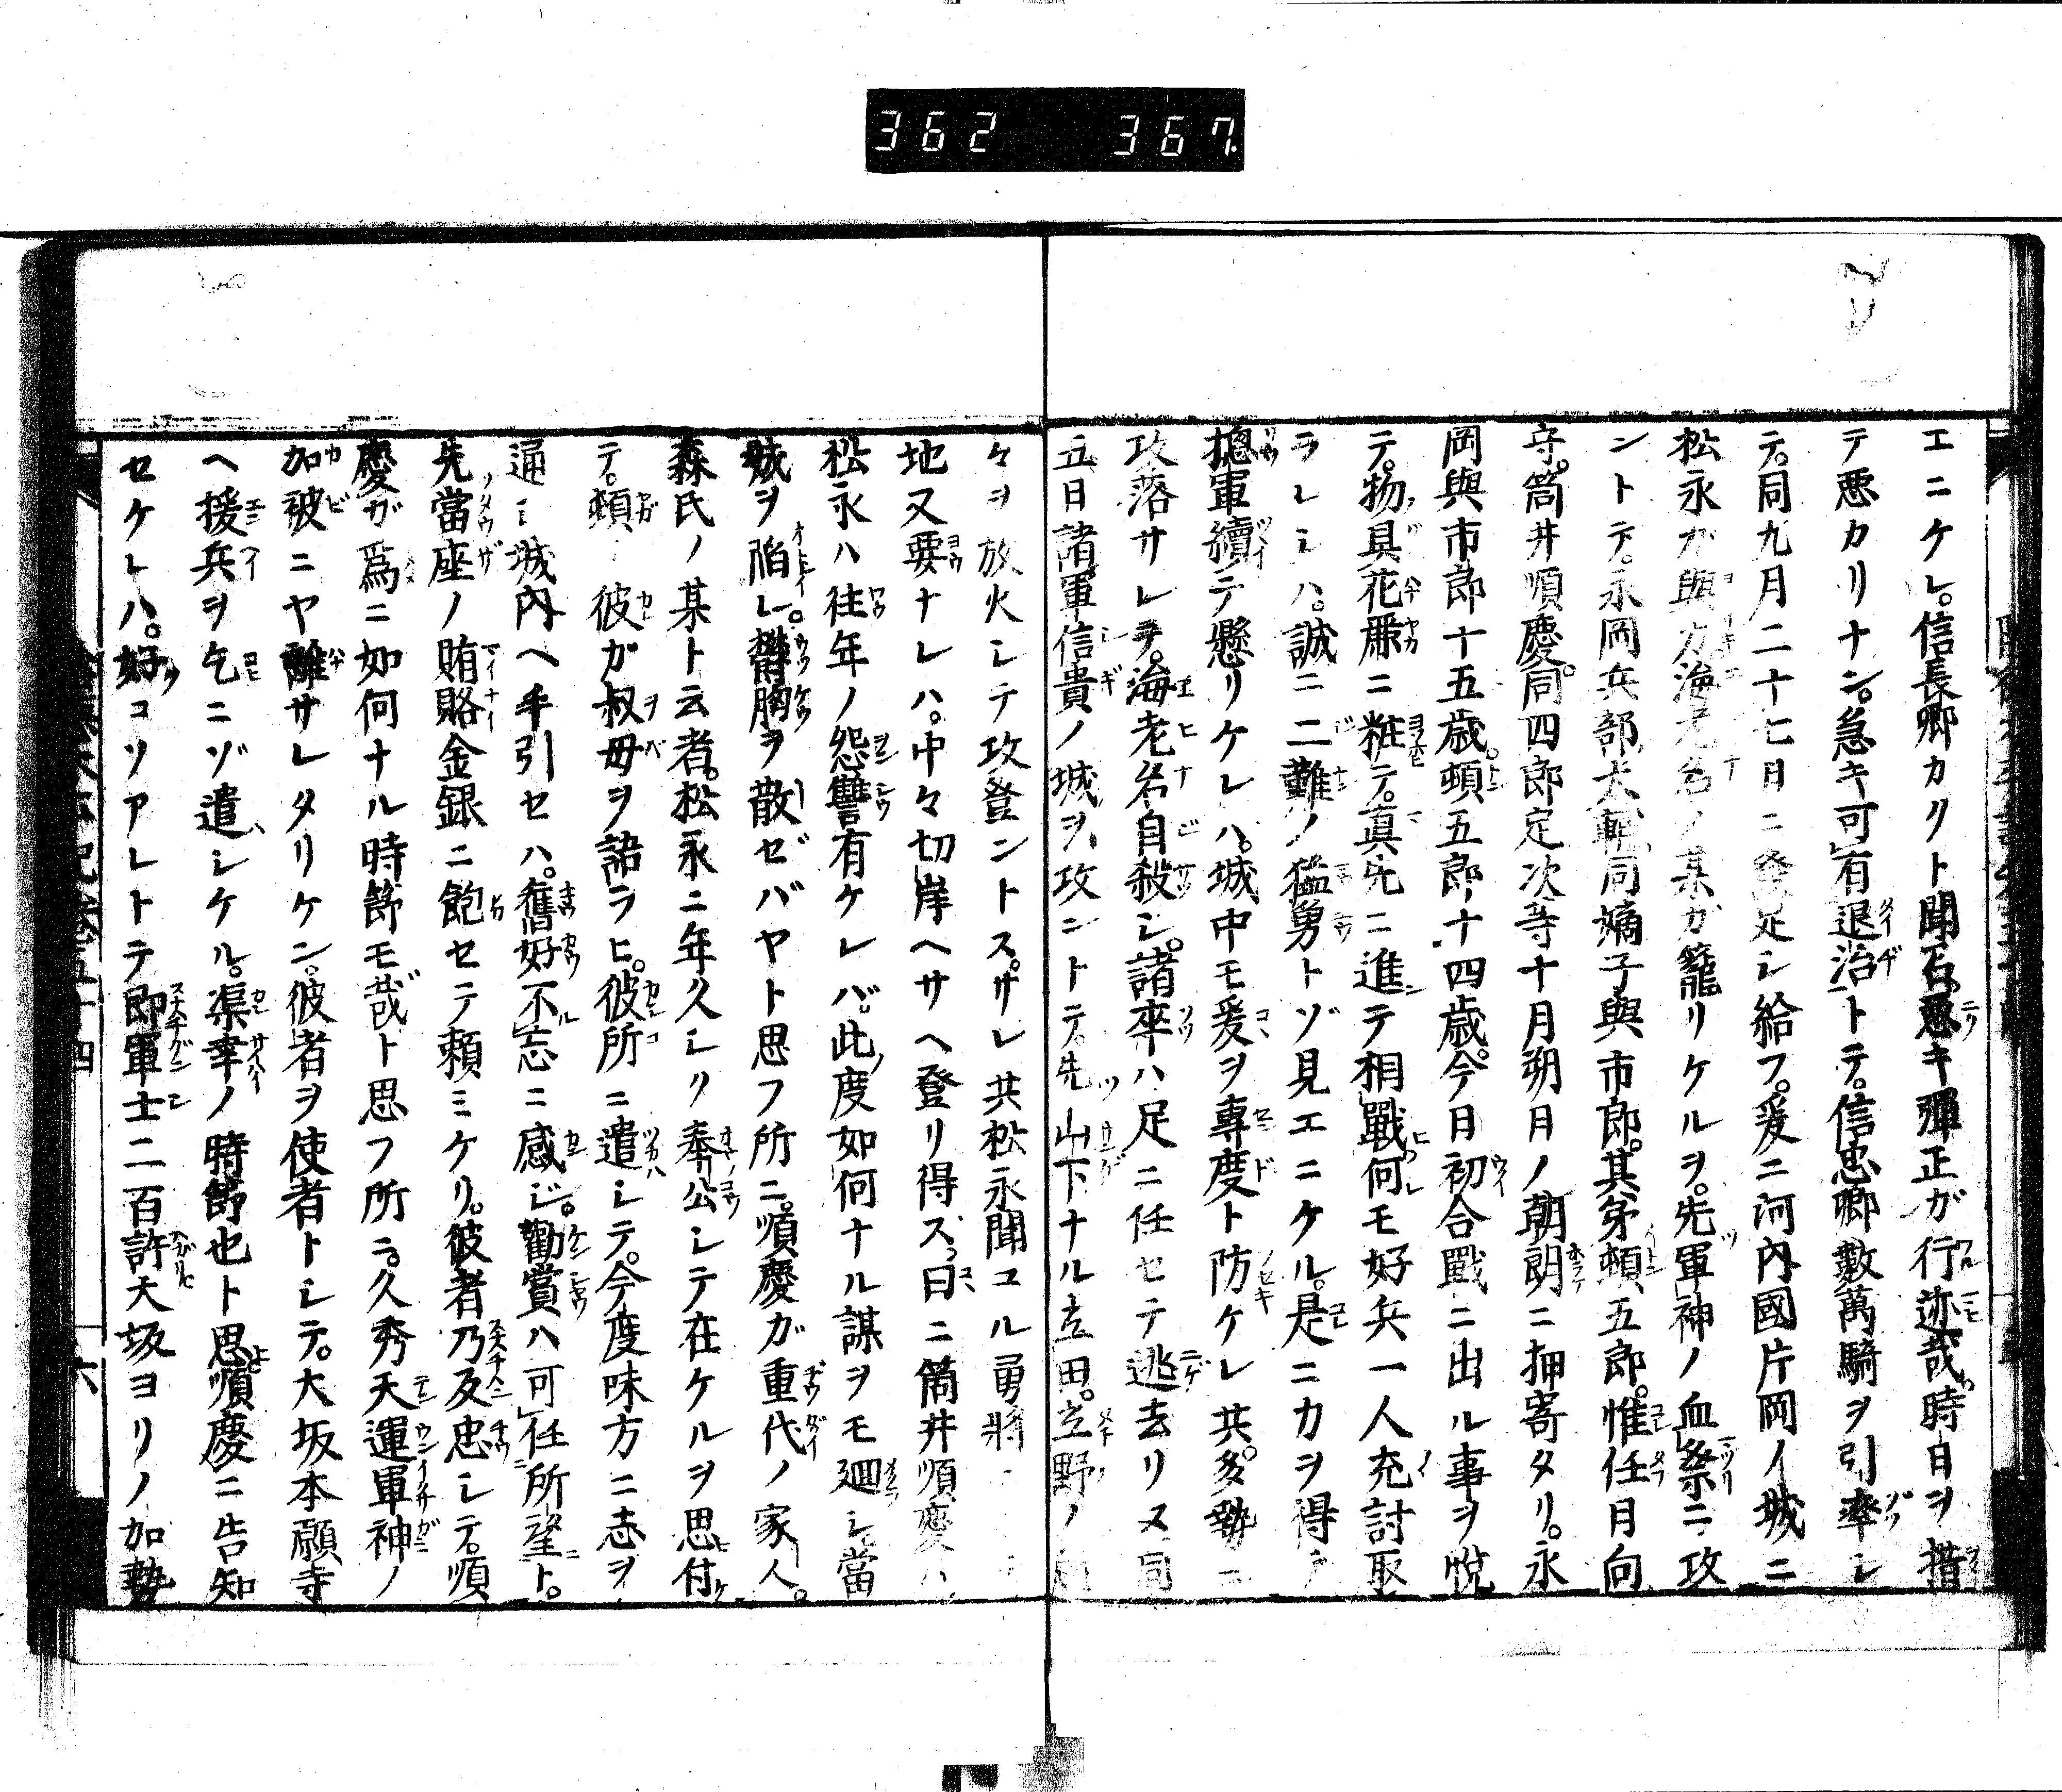 362 367
エニケレ。信長卿カクト聞召、悪キ彈正ガ行迹哉。時日ヲ措
テ悪カリナン。急キ可有退治トテ。信忠卿數萬騎ヲ引率シ
テ。同九月二十七日ニ發足シ給フ。爰ニ河内國片岡ノ城ニ
松永ガ與力海老名ノ某ガ籠リケルヲ。先軍神ノ血祭ニ攻
ントテ。永岡兵部大輔、同嫡子與市郎。其弟頓五郎。惟任日向
守。筒井順慶。同四郎定次等十月朔日ノ朝朗ニ押寄タリ。永
岡與市郎十五歳。頓五郎十四歳。今日初合戰ニ出ル事ヲ悅
テ。物具花麗ニ粧テ。真先ニ進テ相戰、何モ好兵一人充討取
ラレシハ。誠ニ二難ノ猛勇トゾ見エニケル。是ニカヲ得テ
摠軍續テ懸リケレハ。城中モ爰ヲ專度ト防ケレ共。多勢ニ
攻落サレテ。海老名自殺シ。諸卒ハ足ニ任セテ逃去リヌ同
五日諸軍信貴ノ城ヲ攻ントテ。先山下ナル立田。立野ノ
々ヲ放火シテ攻登ントス。サレ共松永聞ユル勇將
地又要ナレハ。中々切岸ヘサヘ登リ得ス。曰ニ筒井順慶ハ
松永ハ往年ノ怨讐有ケレバ。此度如何ナル謀ヲモ廻シ。當
城ヲ陥レ。欝胸ヲ散ゼバヤト思フ所ニ。順慶ガ重代ノ家人。
森氏ノ某ト云者。松永ニ年久シク奉公シテ在ケルヲ思付
テ。頓テ彼ガ叔母ヲ語ラヒ。彼所ニ遣シテ。今度味方ニ志ヲ
通シ城内ヘ手引セハ。舊好不忘ニ感ジ。勸賞ハ可任所望ト。
先當座ノ賄賂金銀ニ飽セテ頼ミケリ。彼者乃反忠シテ。順
慶ガ爲ニ如何ナル時節モ哉ト思フ所ニ。久秀天運軍神ノ
加被ニヤ離サレタリケン。彼者ヲ使者トシテ。大坂本願寺
ヘ援兵ヲ乞ニゾ遣シケル。渠幸ノ時節也ト思。順慶ニ告知
セケレハ。好コソアレトテ即軍士二百許大坂ヨリノ加勢
六